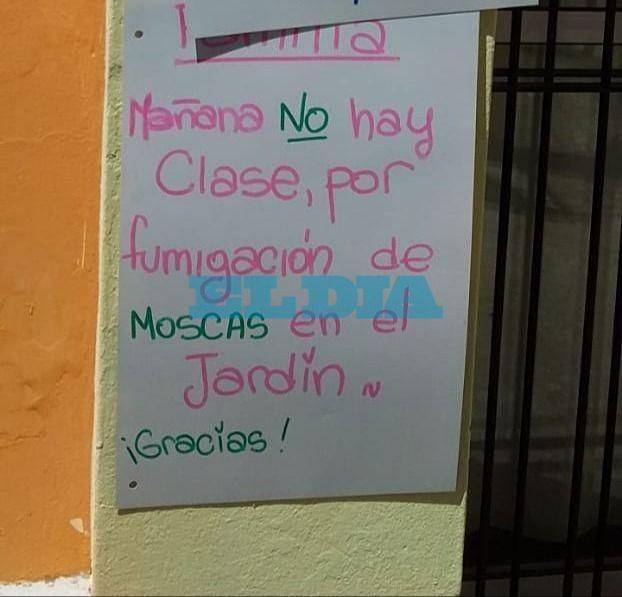 Mañana NO hay
Clase, por
fumigación de
EL DIA
MOSCAS en el
Jardín
¡Gracias!